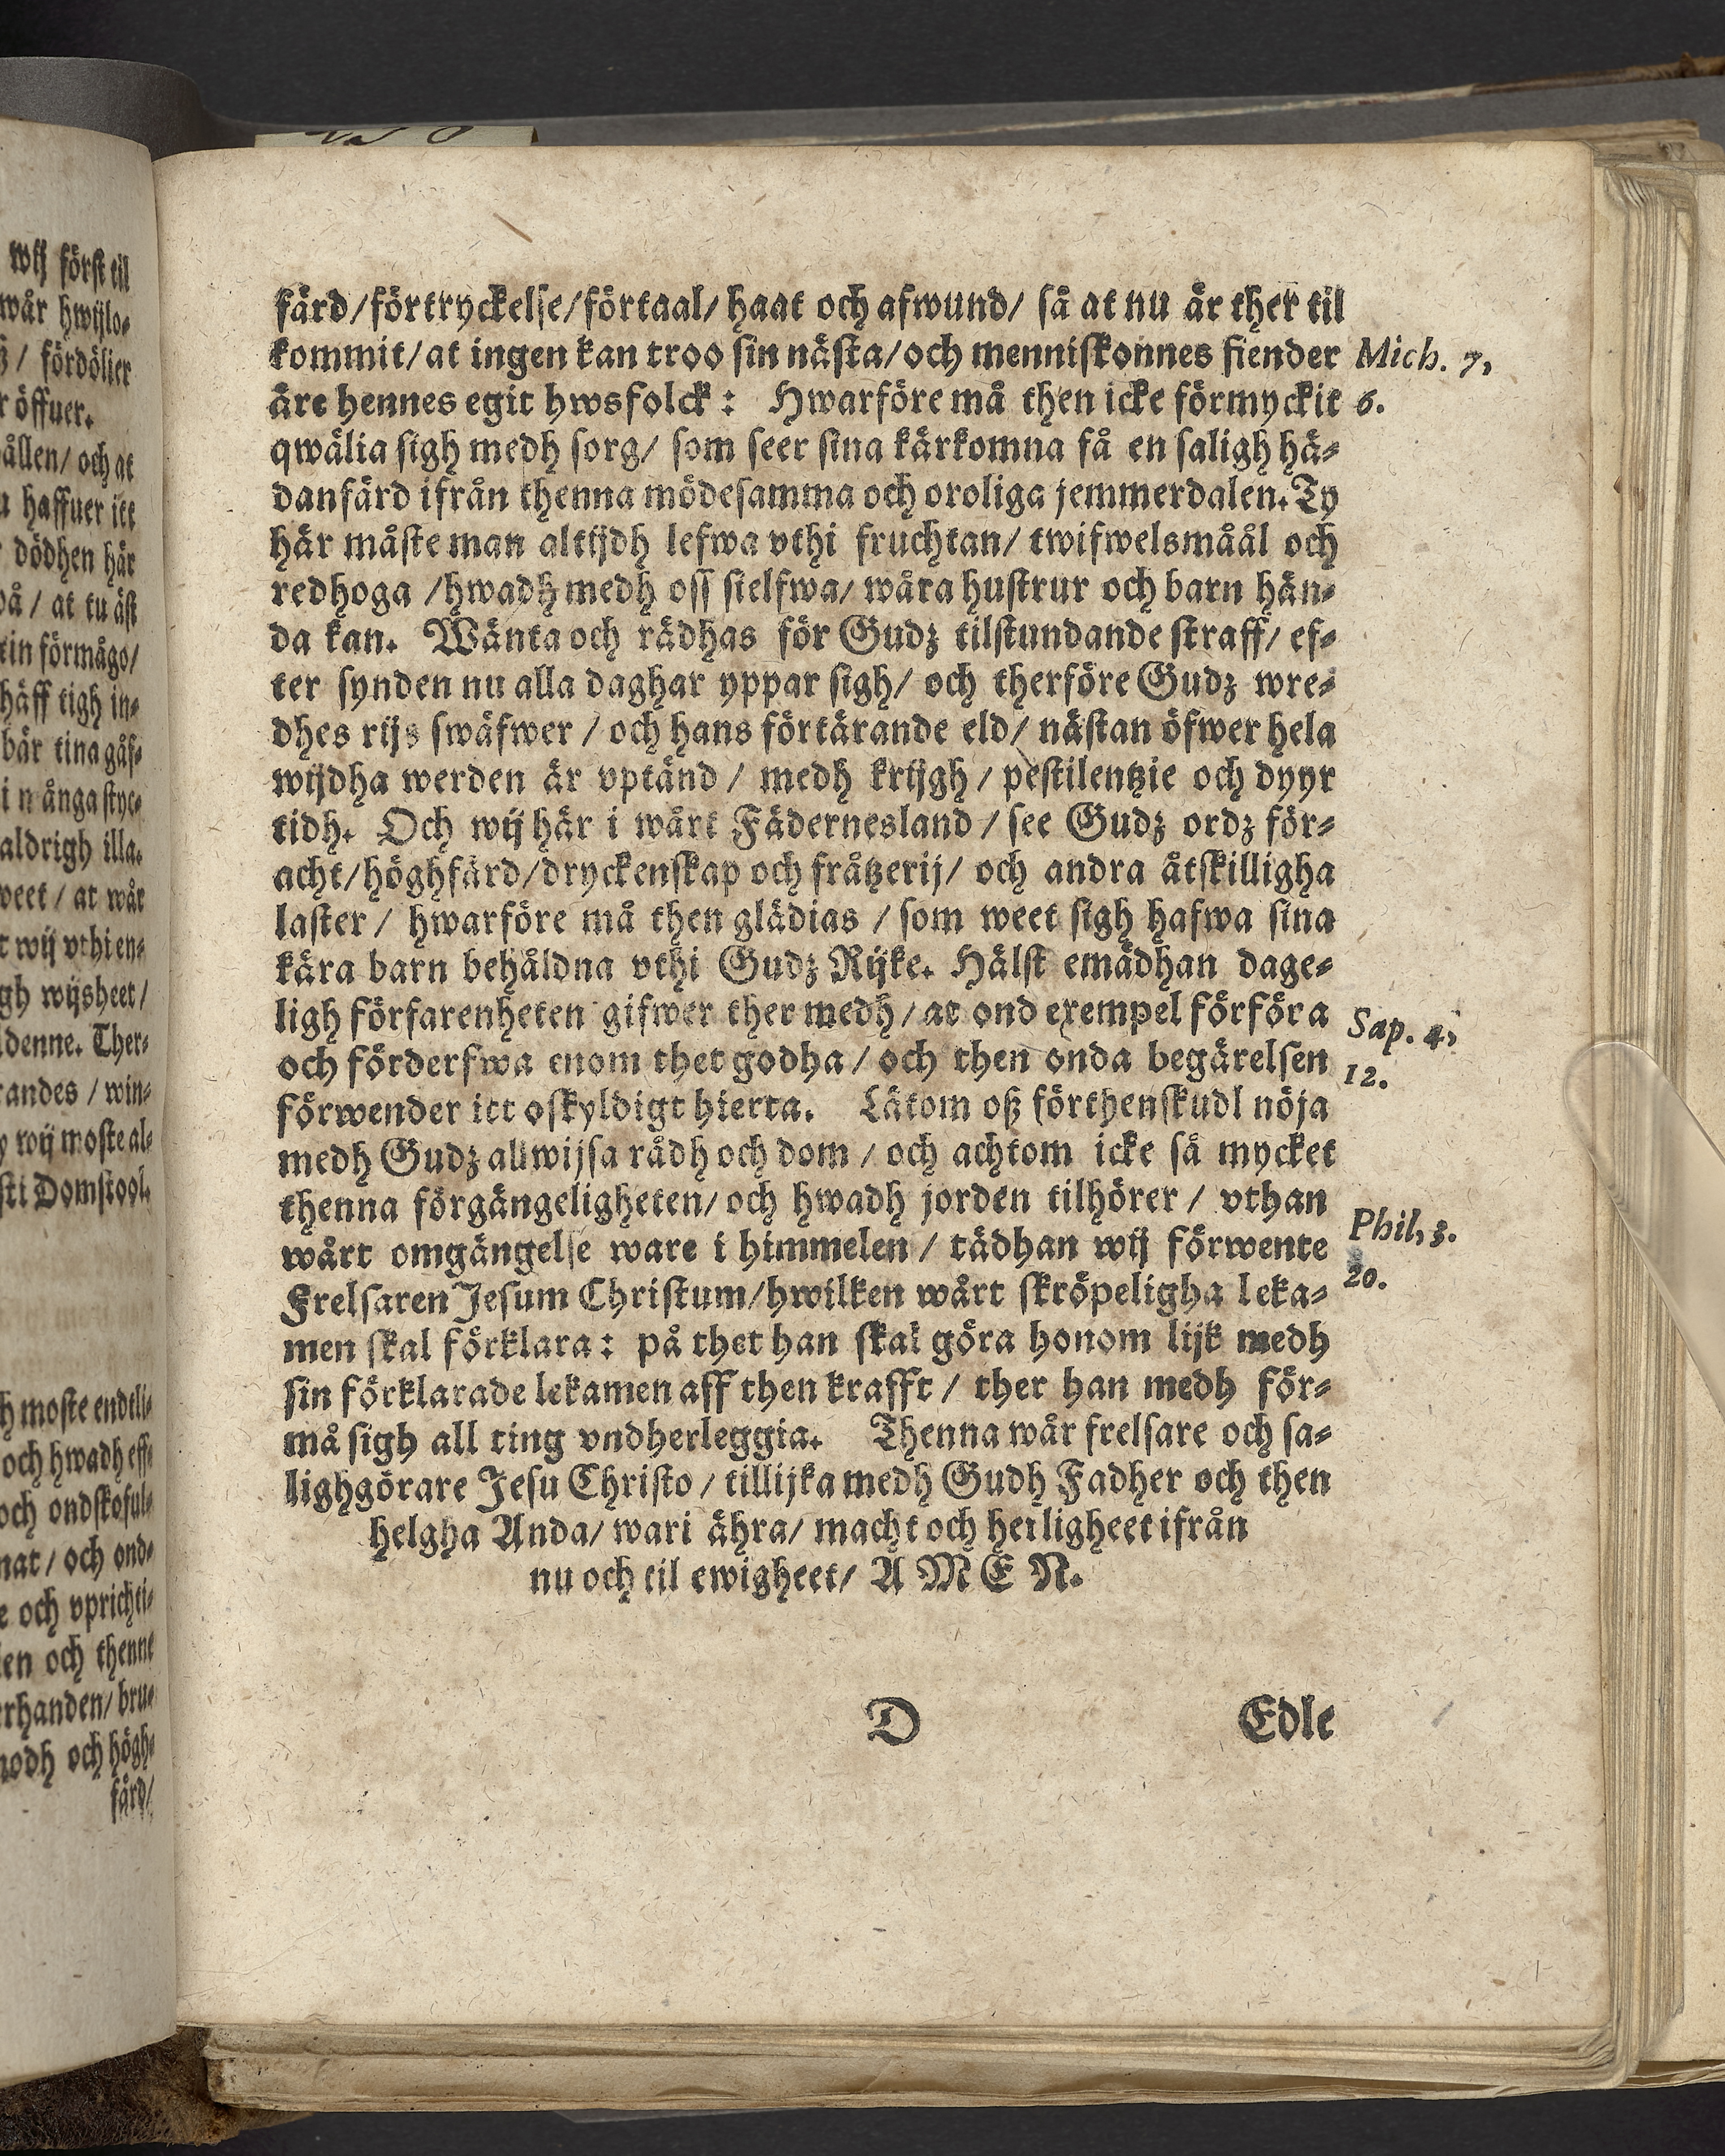 wij först til
wår hwijlo-
/ fördölier
öffuer.
ållen/ och at
haffuer itt
dödhen här
på/ at tu äst
tin förmågo/
häff tigh in-
bär tina gåf-
i många styc-
aldrigh illa.
weet/ at wår
wij vthi en-
wijsheet/
denne. Ther-
randes/ win-
wij moste al-
sti Domstool.
moste endeli-
och hwadh eff-
och ondskeful-
nat/ och ond-
och vprichti-
en och thenne
erhanden/ bru-
modh och högh-
färd/
färd/förtryckelse/förtaal/ haat och afwund/ så at nu är ther til
kommit/at ingen kan troo sin nästa/och menniskonnes fiender Mich. 7,
äre hennes egit hwsfolck: Hwarföre må then icke förmyckit 6.
qwälia sigh medh sorg/ som seer sina kärkomna få en saligh hä-
danfärd ifrån thenna mödesamma och oroliga jemmerdalen. Ty
här måste man altijdh lefwa vthi fruchtan/ twifwelsmåål och
redhoga /hwadh medh oss sielfwa/ wåra hustrur och barn hän-
da kan. Wänta och rädhas för Gudz tilstundande straff/ ef-
ter synden nu alla daghar yppar sigh/ och therföre Gudz wre-
dhes rijs swäfwer / och hans förtärande eld/ nästan öfwer hela
wijdha werden är vptänd / medh krijgh / pestilentzie och dyyr
tidh. Och wij här i wårt Fädernesland / see Gudz ordz för-
acht/höghfärd/dryckenskap och fråtzerij/ och andra åtskilligha
laster / hwarföre må then glädias / som weet sigh hafwa sina
kära barn behåldna vthi Gudz Rijke. Hälst emädhan dage-
ligh förfarenheten gifwer ther medh/ at ond exempel förföra Sap. 4,
och förderfwa enom thet godha / och then onda begärelsen 12.
förwender itt oskyldigt hierta. Låtom oß förthenskudl nöja
medh Gudz allwijsa rådh och dom / och achtom icke så mycket
thenna förgängeligheten/ och hwadh jorden tilhörer / vthan
wårt omgängelse ware i himmelen / tädhan wij förwente Phil, 3.
Frelsaren Jesum Christum/hwilken wårt skröpeligha leka- 20.
men skal förklara: på thet han skal göra honom lijk medh
sin förklarade lekamen aff then krafft / ther han medh för-
må sigh all ting vndherleggia. Thenna wår frelsare och sa-
lighgörare Jesu Christo / tillijka medh Gudh Fadher och then
helgha Anda/ wari ähra/ macht och herligheet ifrån
nu och til ewigheet/ A M E N.
D Edle